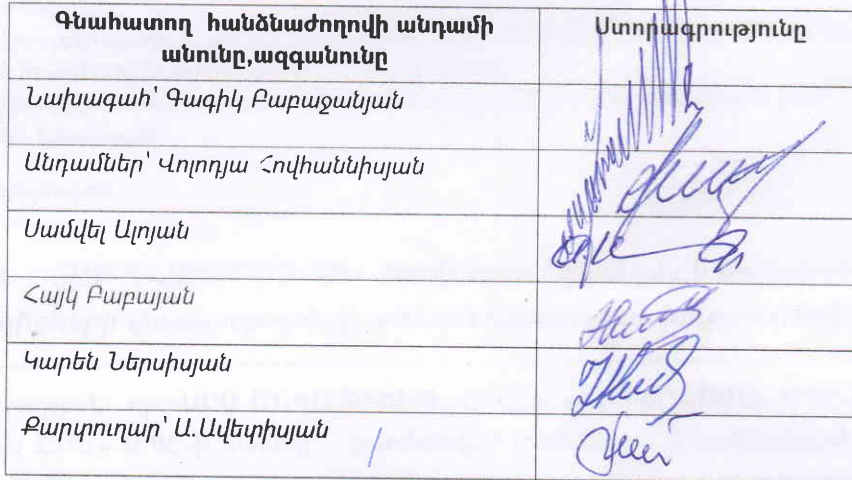 Գնահատող հանձնաժողովի անդամի Ստորագրությունը
անունը,ազգանունը
Նախագահ՝ Գագիկ Բաբաջանյան
Անդամներ՝ Վոլոդյա Հովհաննիսյան
Սամվել Ալոյան
Հայկ Բաբայան
Կարեն Ներսիսյան
Քարտուղար՝ Ա.Ավետիսյան